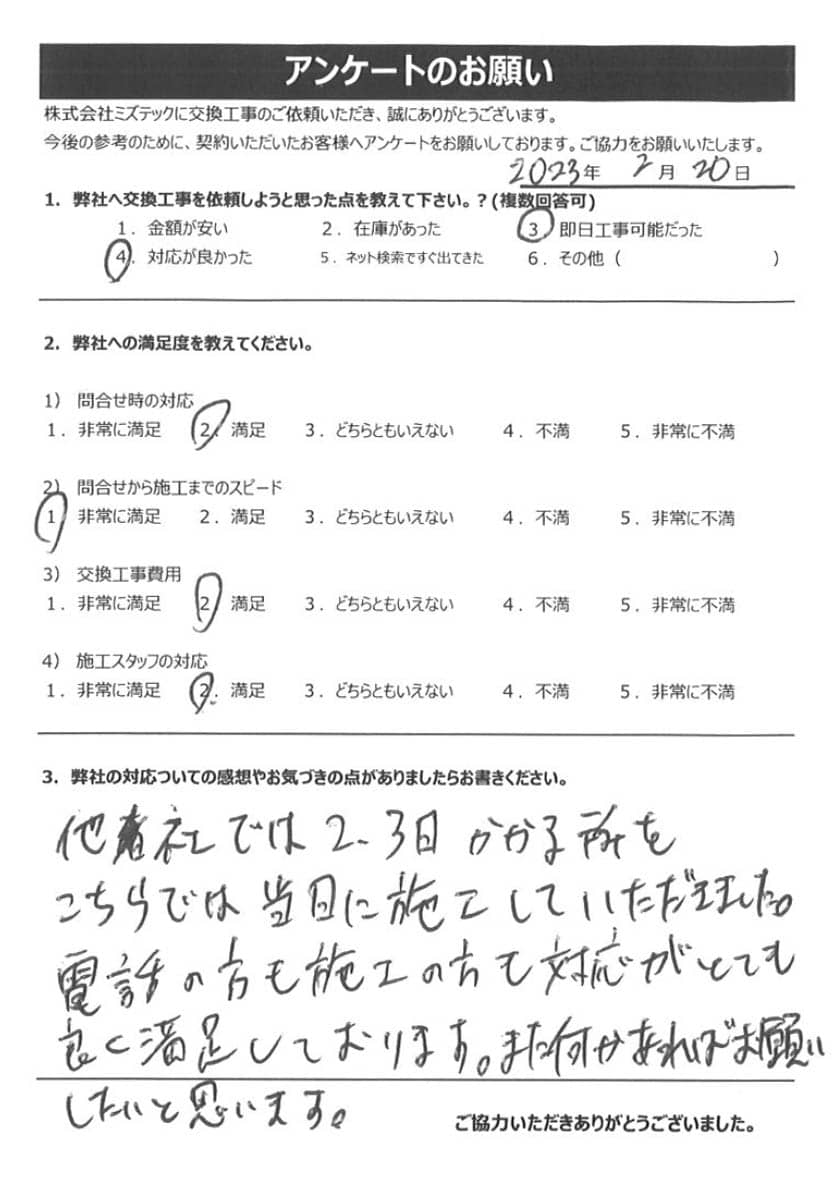 アンケートのお願い
株式会社ミズテックに交換工事のご依頼いただき、誠にありがとうございます。
今後の参考のために、契約いただいたお客様へアンケートをお願いしております。ご協力をお願いいたします。
2023年 2月 20日
1. 弊社へ交換工事を依頼しようと思った点を教えて下さい。?(複数回答可)
1. 金額が安い 2. 在庫があった 3. 即日工事可能だった
4. 対応が良かった 5. ネット検索ですぐ出てきた 6. その他 ( )
2. 弊社への満足度を教えてください。
1) 問合せ時の対応
1. 非常に満足 2. 満足 3. どちらともいえない 4. 不満 5. 非常に不満
2) 問合せから施工までのスピード
1 非常に満足 2. 満足 3. どちらともいえない 4. 不満 5. 非常に不満
3) 交換工事費用
1. 非常に満足 2. 満足 3. どちらともいえない 4. 不満 5. 非常に不満
4) 施工スタッフの対応
1. 非常に満足 2. 満足 3. どちらともいえない 4. 不満 5. 非常に不満
3. 弊社の対応ついての感想やお気づきの点がありましたらお書きください。
他社では2、3日かかる所を
こちらでは当日に施工していただきました。
電話の方も施工の方も対応がとても
良く満足しております。また何かあればお願い
したいと思います。
ご協力いただきありがとうございました。